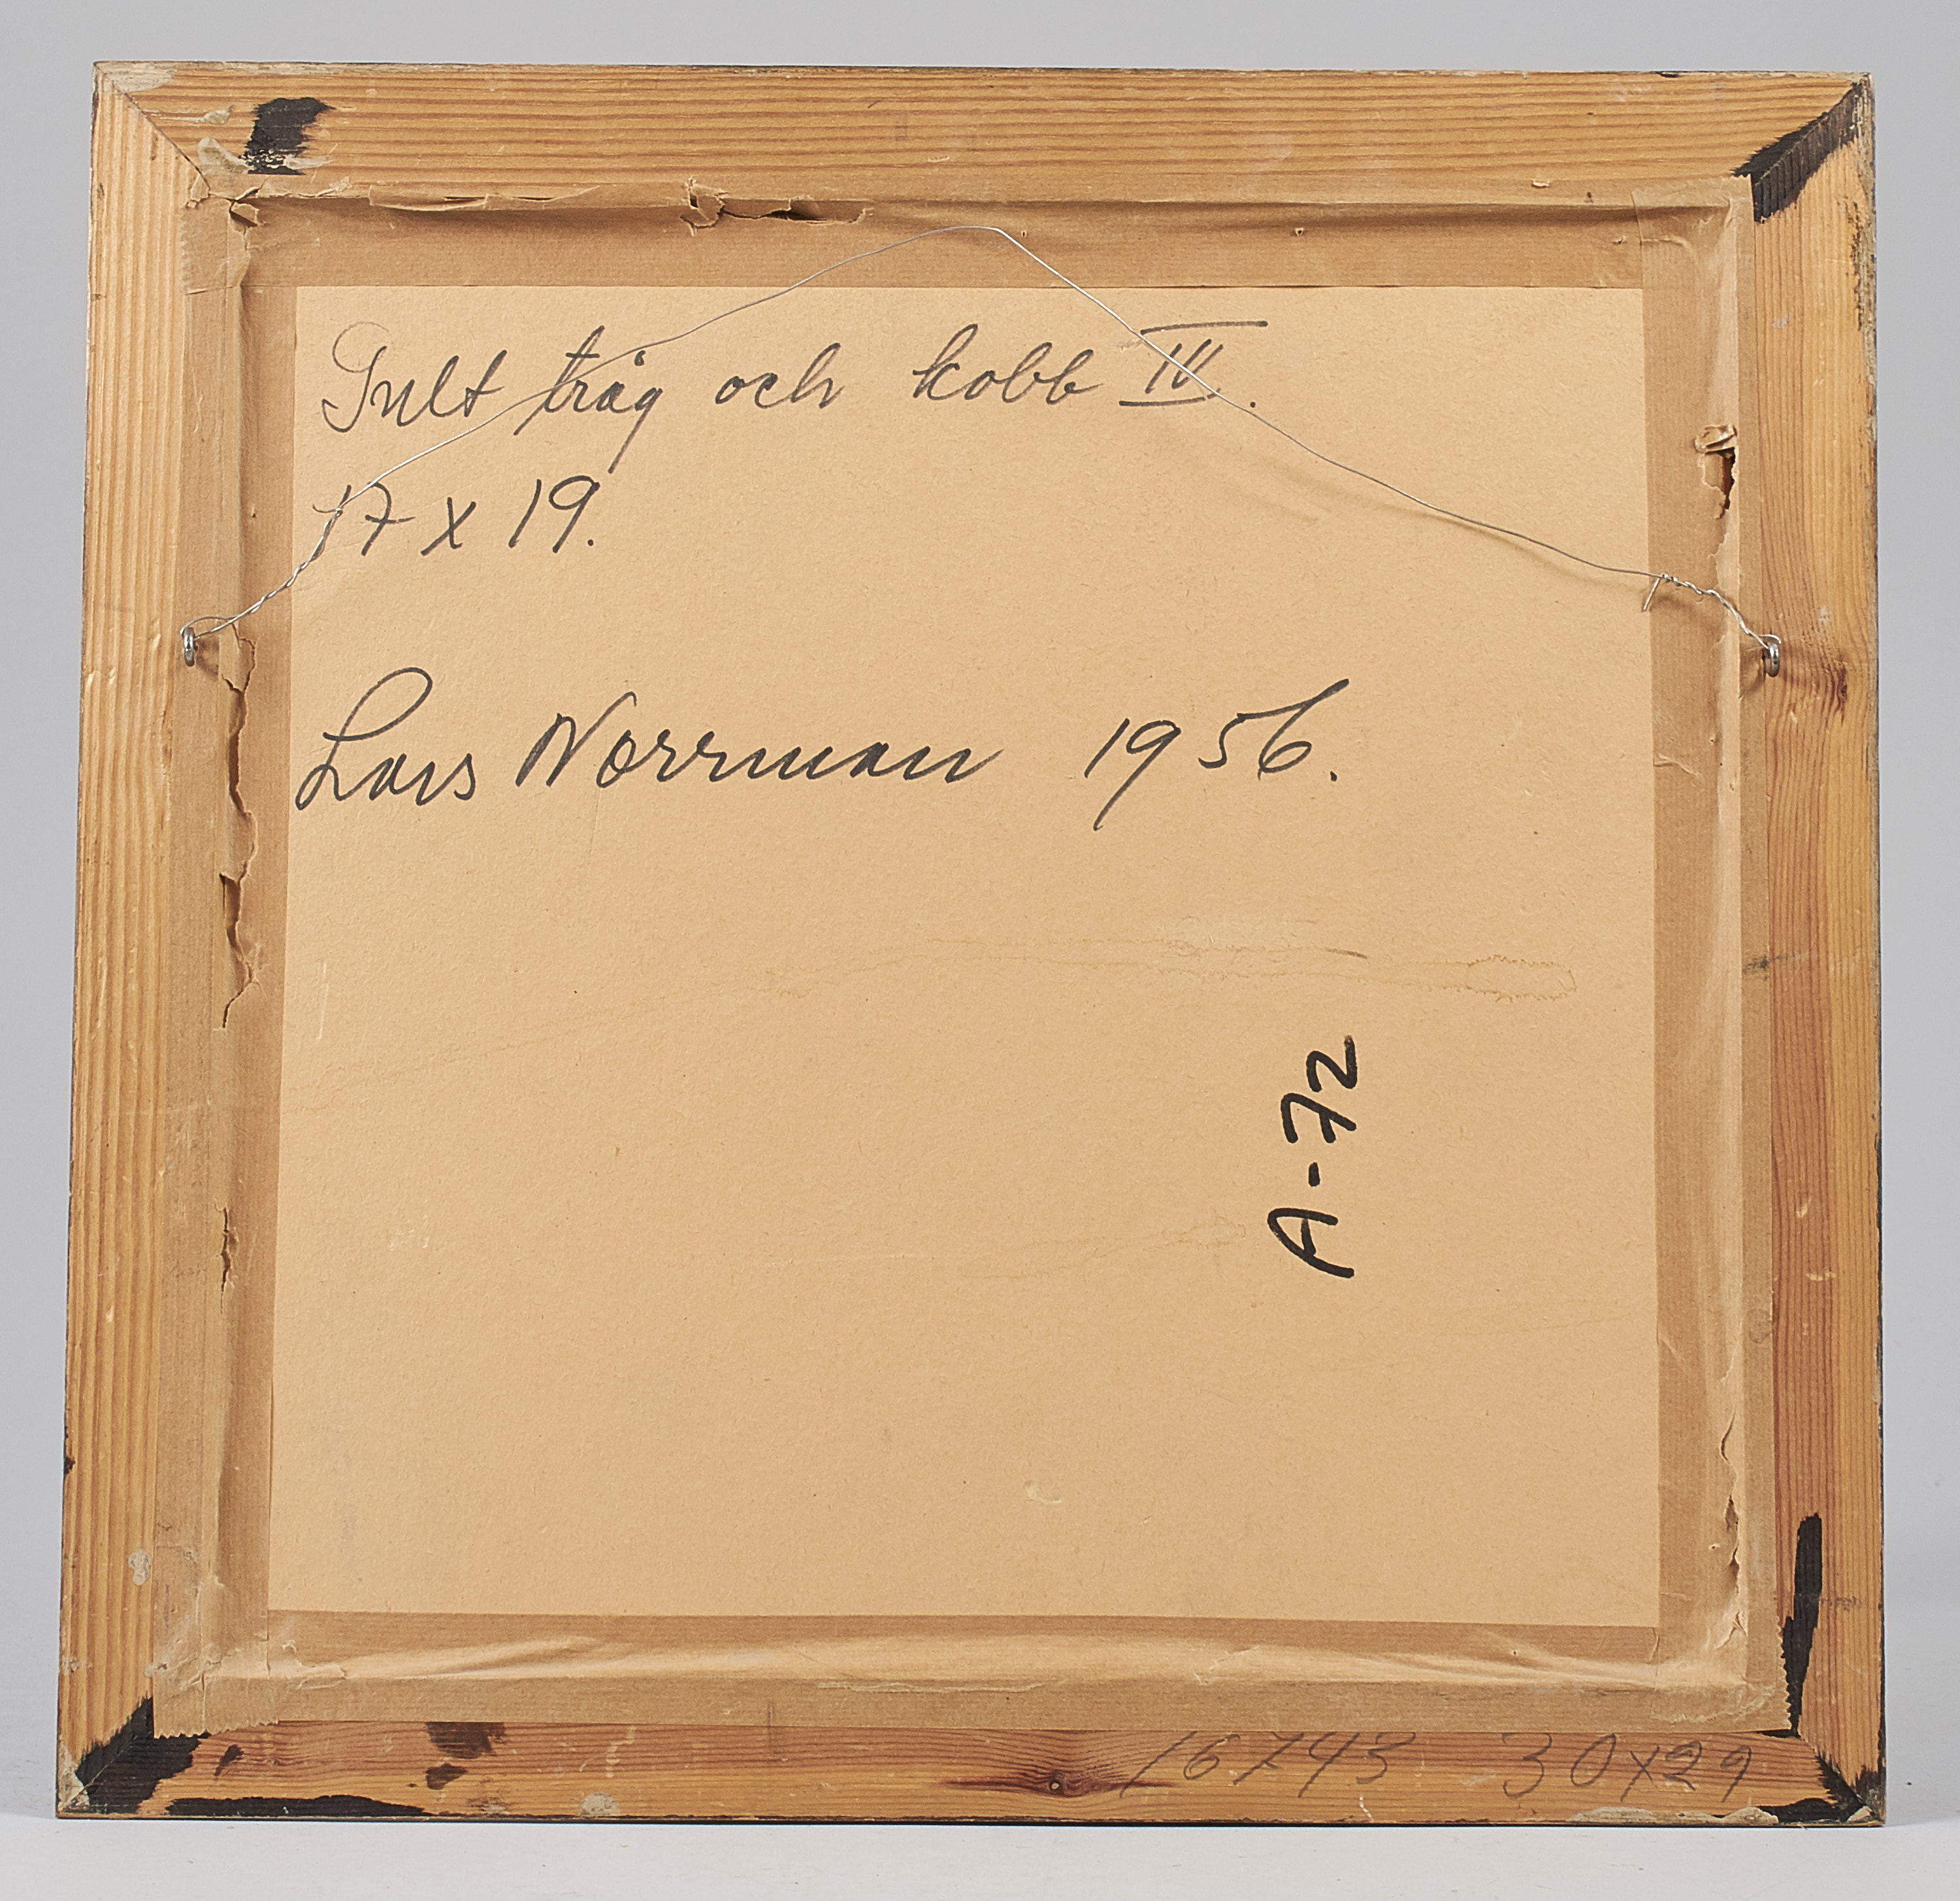 Gult tråg och kobb IV.
17 x 19.
Lars Norrman 1956.
A-72
16743 30x29